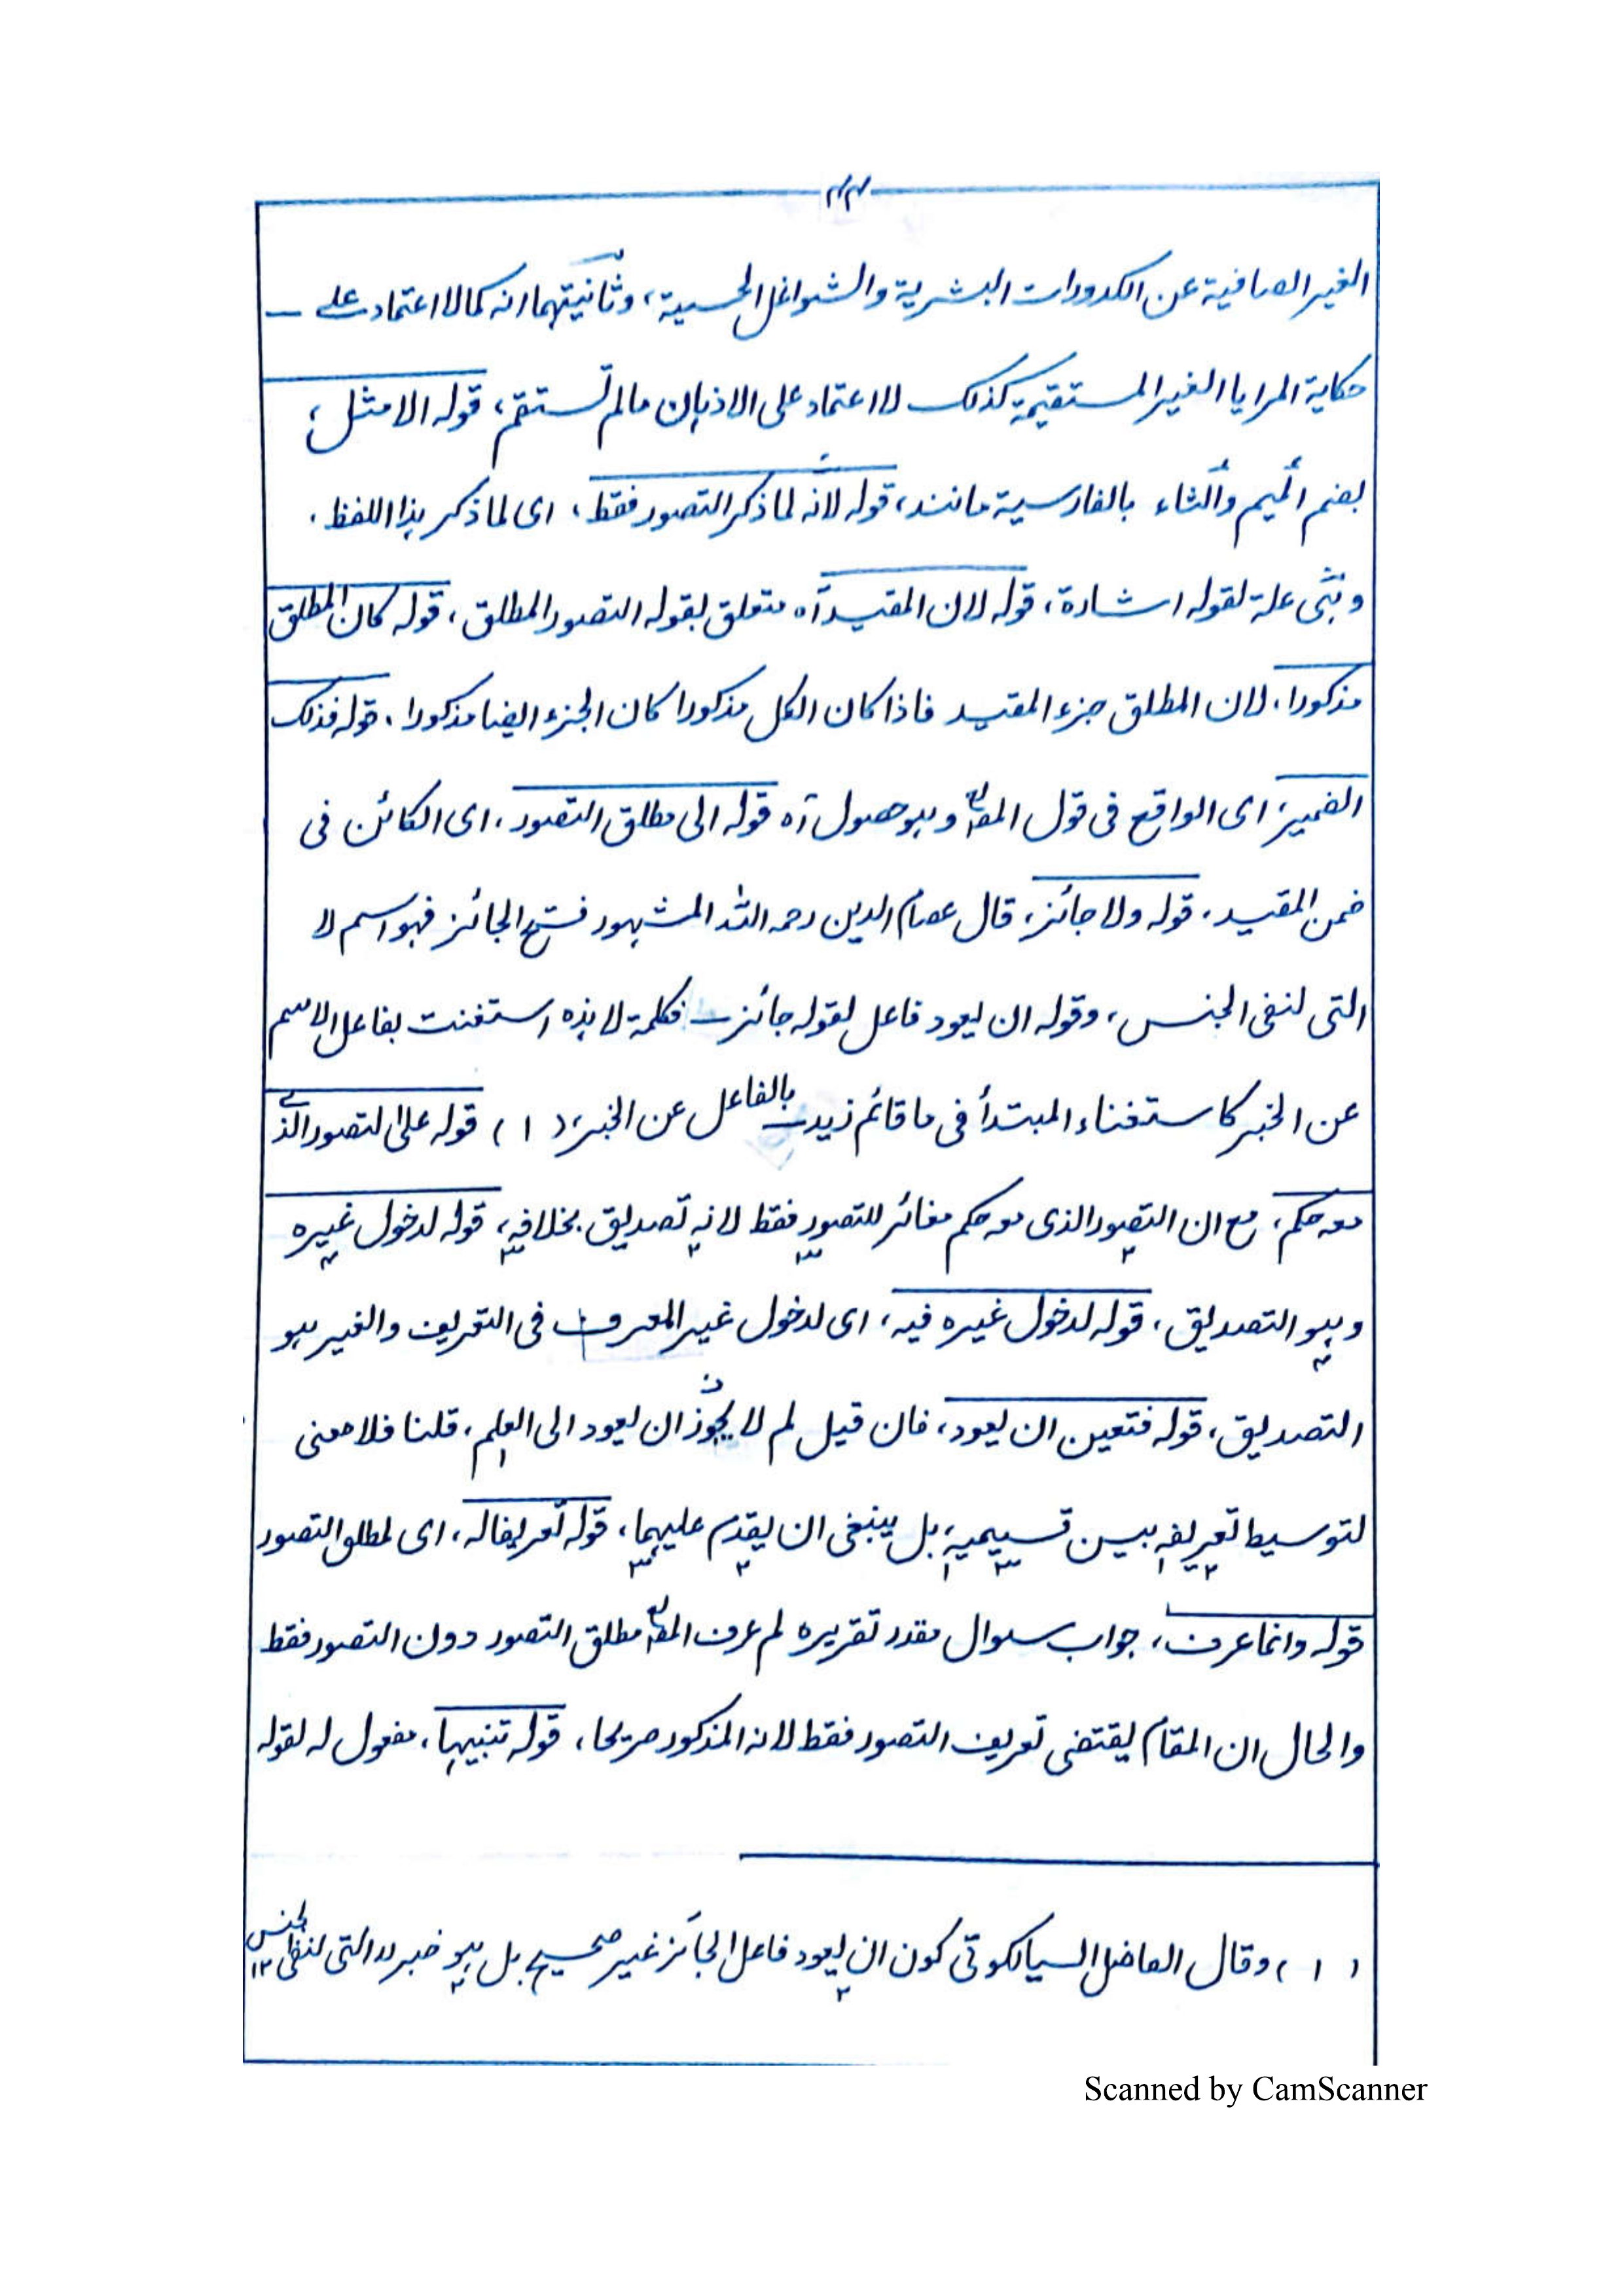 الغير الصافية عن الكدورات البشرية والشواغل الحسية، وثانيتهما انه كما لا اعتماد على
حكاية المرايا الغير المستقيمة كذلك لا اعتماد على الاذهان مالم تستقم، قوله الامثل،
بضم الميم والثاء بالفارسية مانند، قوله لانه لما ذكر التصور فقط، اى لما ذكر هذا اللفظ.
وهى علة لقوله اشارة، قوله لان المقيد آه متعلق بقوله التصور المطلق، قوله كان المطلق
مذكورا، لان المطلق جزء المقيد فاذا كان الكل مذكورا كان الجزء ايضا مذكورا، قوله فذلك
الضمير، اى الواقع فى قول المصؒ وهو حصول آه قوله الى مطلق التصور، اى الكائن فى
ضمن المقيد، قوله ولا جائز، قال عصام الدين رحمه الله المشهور فتح الجائز فهو اسم لا
التى لنفى الجنس، وقوله ان يعود فاعل لقوله جائز فكلمة لا هذه استغنت بفاعل الاسم
عن الخبر كاستغناء المبتدأ فى ما قائم زيد بالفاعل عن الخبر، (١) قوله على التصور الذى
معه حكم، مع ان التصور الذى معه حكم مغائر للتصور فقط لانه تصديق بخلافه، قوله لدخول غيره
وهو التصديق، قوله لدخول غيره فيه، اى لدخول غير المعرف فى التعريف والغير هو
التصديق، قوله فتعين ان يعود، فان قيل لم لا يجوز ان يعود الى العلم، قلنا فلا معنى
لتوسيط تعريفه بين قسيميه بل ينبغى ان يقدم عليهما، قوله تعريفا له، اى لمطلق التصور
قوله وانما عرف، جواب سوال مقدر تقريره لم عرف المصؒ مطلق التصور دون التصور فقط
والحال ان المقام يقتضى تعريف التصور فقط لانه المذكور صريحا، قوله تنبيها، مفعول له لقوله
(١) وقال الفاضل السيالكوتى كون ان يعود فاعل الجائز غير صحيح بل هو خبر لا التى لنفى الجنس ١٢
Scanned by CamScanner